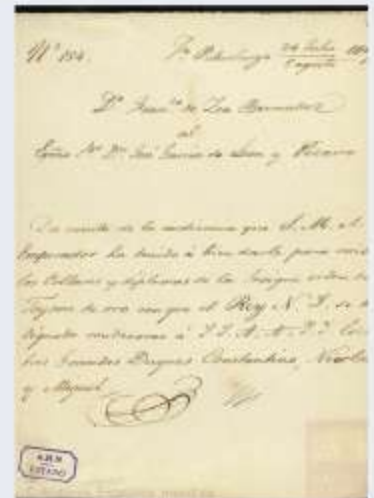 Nº 154. Sn. Petersburgo 24 Julio 5 agosto
Dn. Franco. de Zea Bermudez
al
Exmo. Sr. Dn. José Garcia de Leon y Pizarro
Da cuenta de la audiencia que S. M. el
Emperador ha tenido á bien darle para
los Collares y diplomas de la Insigne orden de
Toyson de oro con que el Rey N. S. se
dignado condecorar á S S. A. A. I I. los
tres Grandes Duques Constantino, Nicolas
y Miguel.
A.H.N
ESTADO